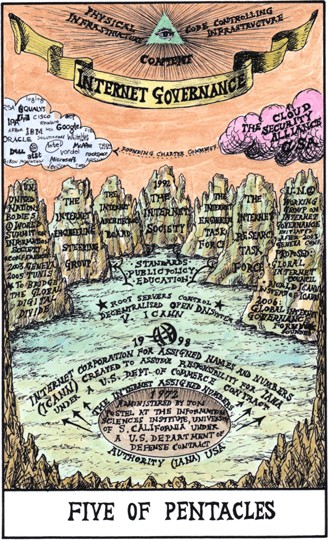 PHYSICAL INFRASTRUCTURE
CODE CONTROLLING INFRASTRUCTURE
CONTENT
INTERNET GOVERNANCE
RSA
QUALYS
CISCO
IBM
Google
ORACLE
DELL
at&t
Intel
McAfee
Vordel
Microsoft
FOUNDING CHARTER COMMUN.
CLOUD
THE SECURITY
ALLIANCE
USA
UNITED
NATIONS
BODIES
WORLD
SUMMIT ON
INFORMATION
SOCIETY
2003 GENEVA
2005 TUNIS
TO BRIDGE
THE GLOBAL
DIGITAL
DIVIDE
THE
INTERNET
ENGINEERING
STEERING
GROUP
THE
INTERNET
ARCHITECTURE
BOARD
1992
THE
INTERNET
SOCIETY
THE
INTERNET
ENGINEERING
TASK
FORCE
THE
INTERNET
RESEARCH
TASK
FORCE
U.N.
WORKING
GROUP ON
INTERNET
GOVERNANCE
GLOBAL
INTERNET
COUNCIL
WORLD ICANN
2006:
GLOBAL INTERNET
GOVERNANCE
FORUM
STANDARDS
PUBLIC POLICY
EDUCATION
ROOT SERVERS CONTROL
DECENTRALISED OPEN DNS
ICANN
1998
INTERNET CORPORATION FOR ASSIGNED NAMES AND NUMBERS
(ICANN) CREATED TO ASSUME RESPONSIBILITY FOR IANA
UNDER A U.S. DEPT. OF COMMERCE CONTRACT
THE INTERNET ASSIGNED NUMBERS
1972
ADMINISTERED BY JON
POSTEL AT THE INFORMATION
SCIENCES INSTITUTE, UNIVERSITY
OF S. CALIFORNIA UNDER
A U.S. DEPARTMENT OF
DEFENSE CONTRACT
AUTHORITY (IANA) USA
FIVE OF PENTACLES